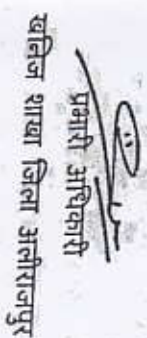 प्रभारी अधिकारी
खनिज शाखा जिला अलीराजपुर